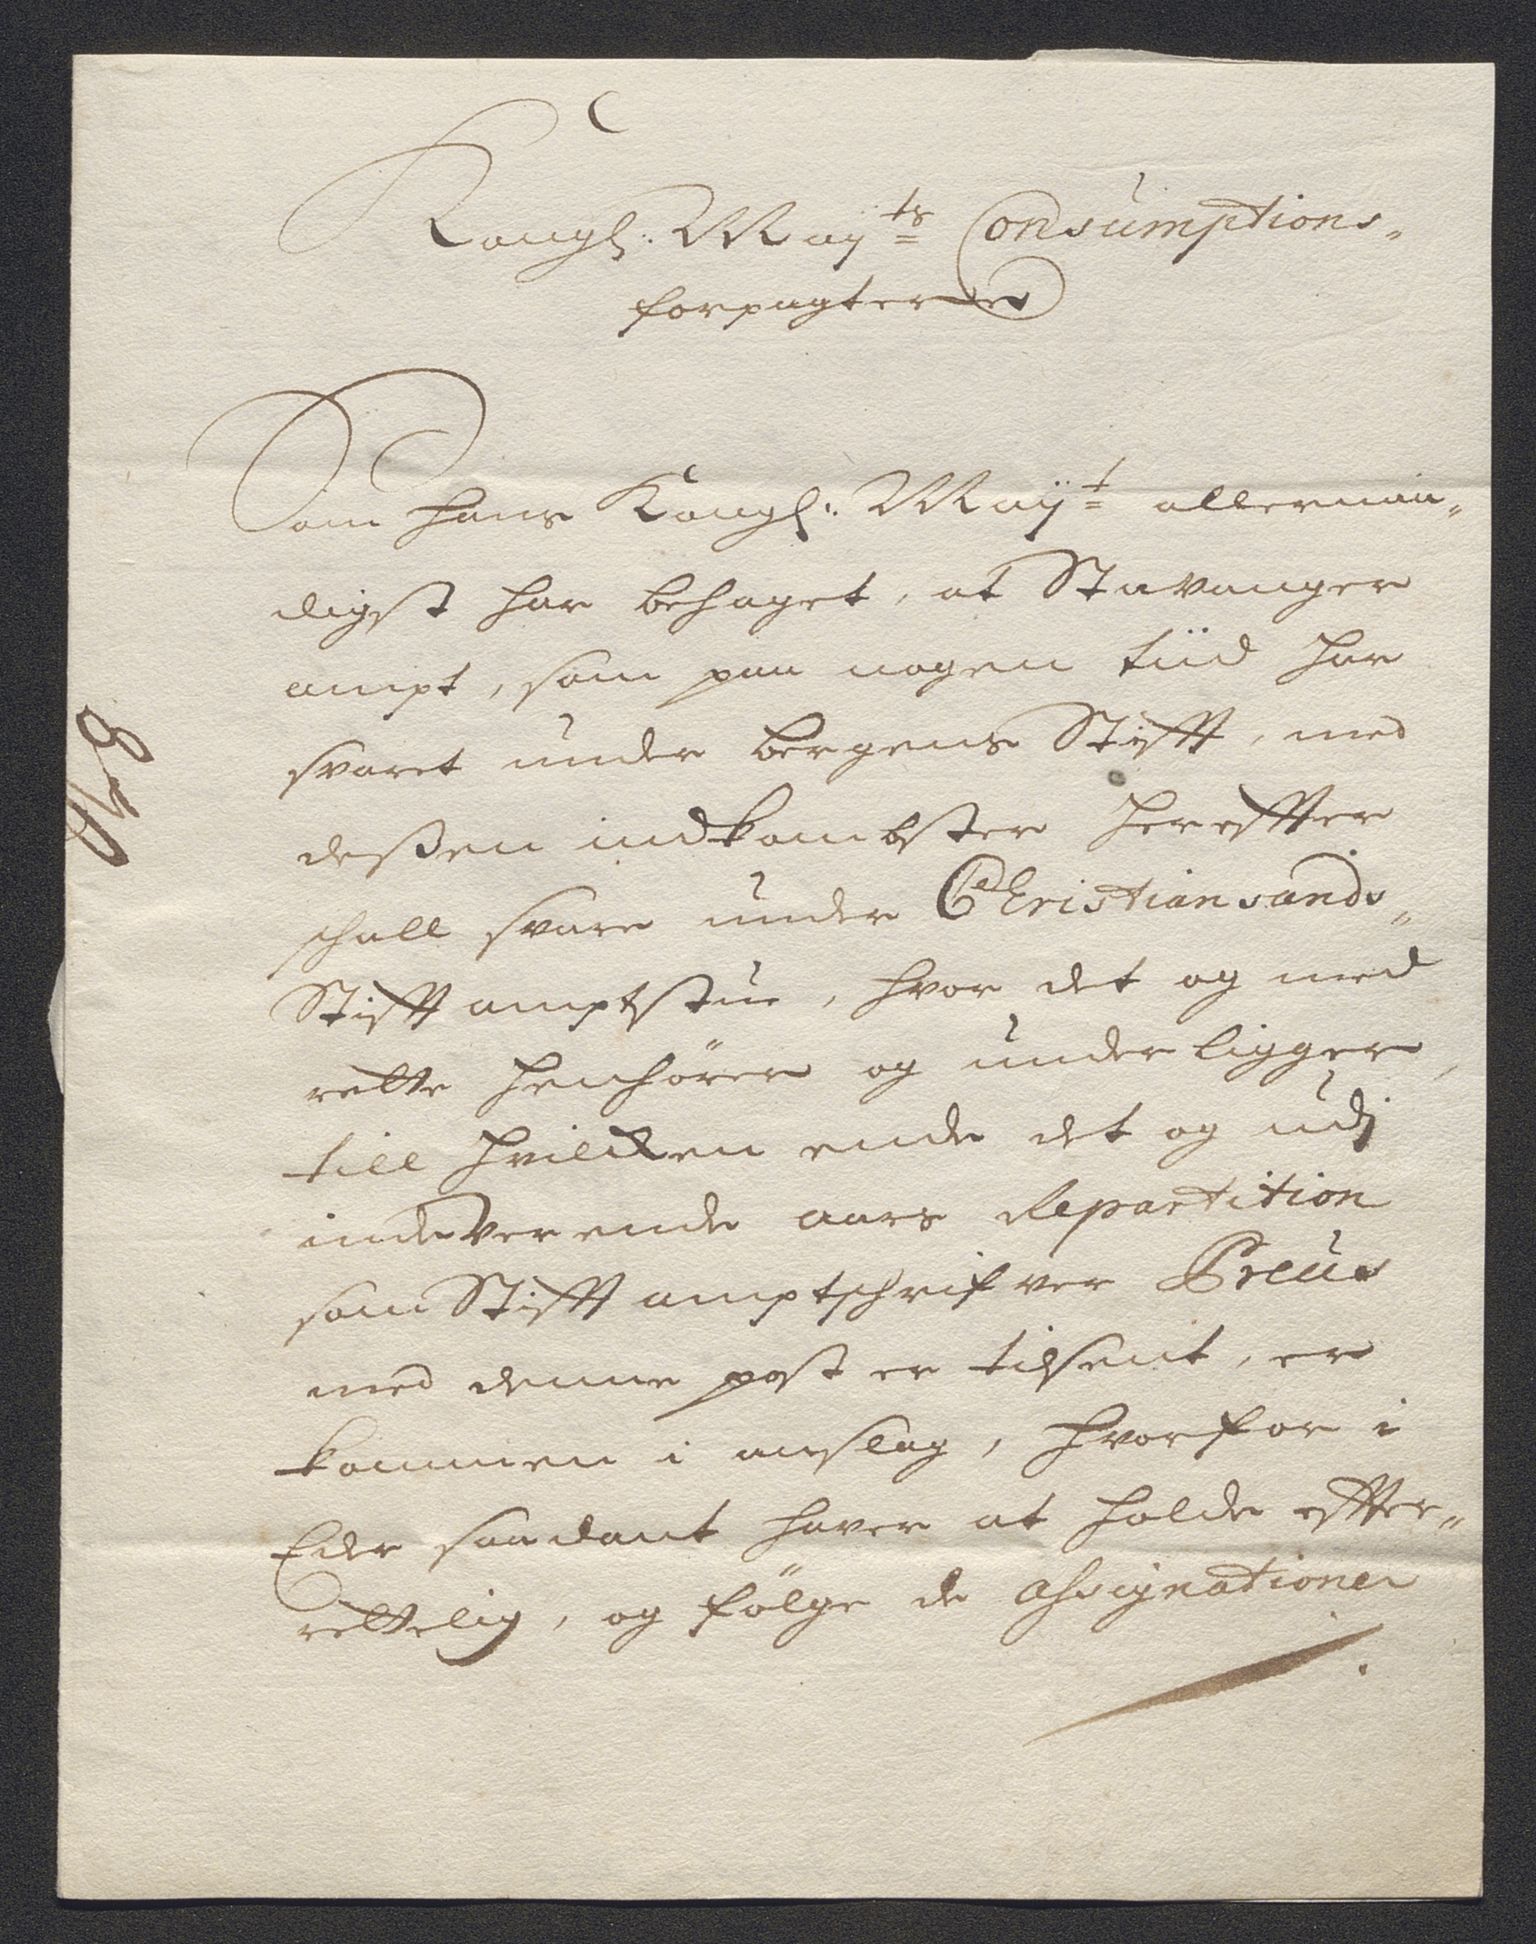 Kongl: Maÿ:ts Consumptions-
forpagtere

Som hans Kongl: Maÿt: allernaa-
digst har behaget, at Stavanger
ampt, som paa nogen tiid har
svaret under bergens Stifft, med
deßen indkombster hereffter
schall svare under Christiansands-
Stifft amptstue, hvor det og med
rette henhörer og underligger,
till hvilcken ende det og udj
indeverende aars Repartition
som Stifft amptschrifver Preus
med denne post er tilsent, er
kommen i anslag, hvorfor i
Eder saadant haver at holde effter-
rettelig, og fölge de assignationer